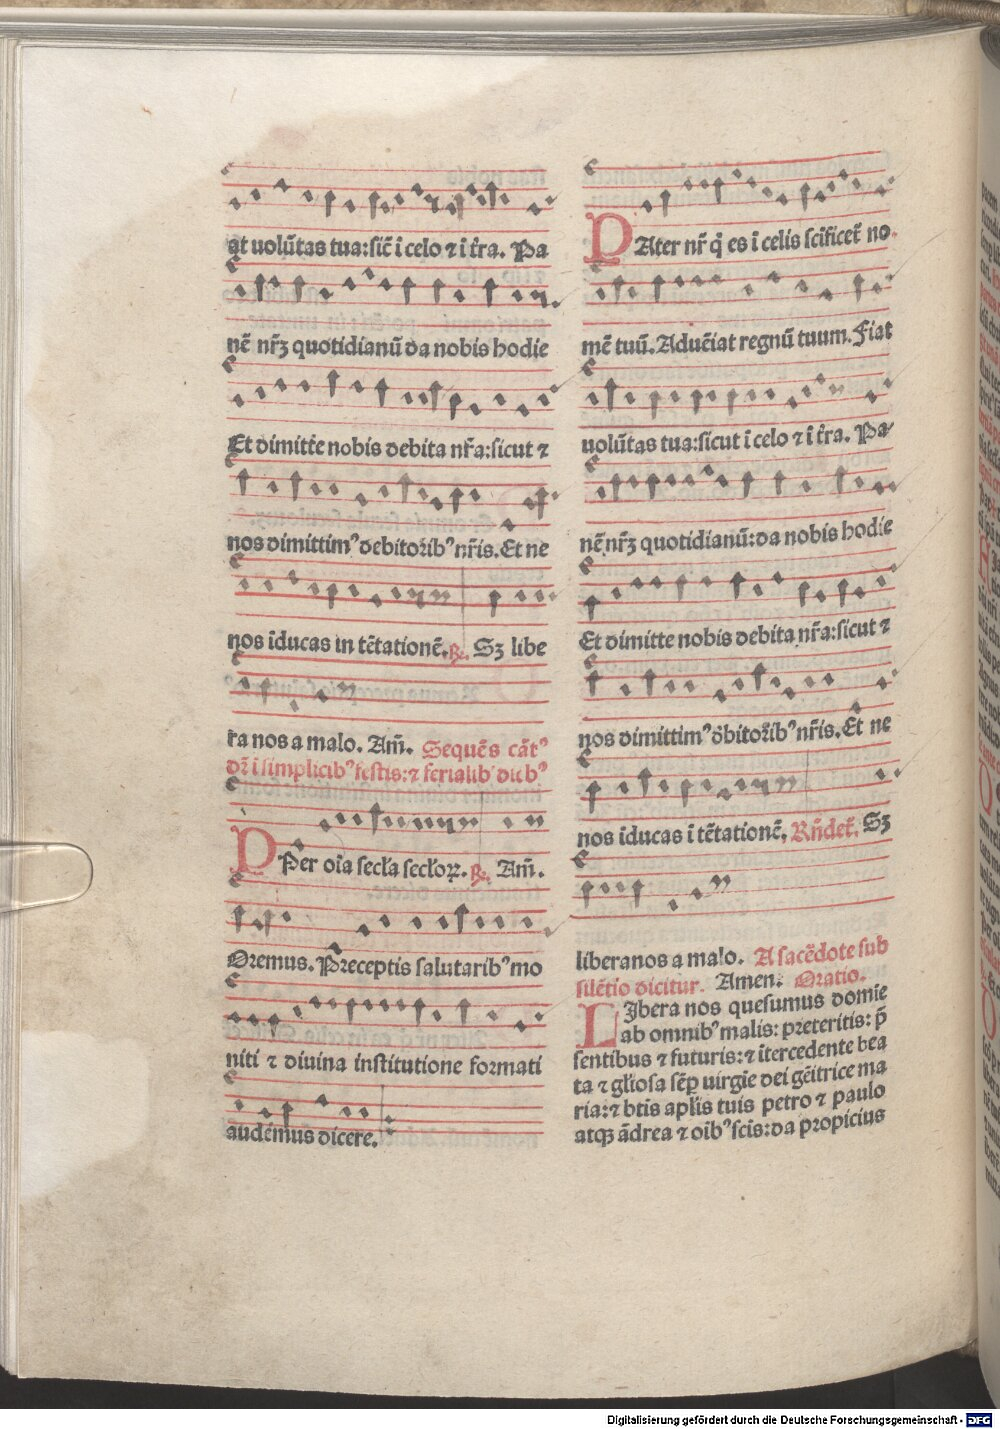 at uolũtas tua:sic̃ i celo ⁊ i t̃ra. Pa
nẽ nr̃ꝫ quotidianũ da nobis hodie
Et dimitt̃e nobis debita nr̃a:sicut ⁊
nos dimittimꝰ debitorĩbꝰ nr̃is. Et ne
nos ĩducas in tẽtationẽ. ℞. Sꝫ libe
ra nos a malo. Am̃. Sequẽs cãtꝰ
dr̃ i simplicibꝰ festis:⁊ ferialibꝰ diebꝰ
PEr oĩa secl̃a secl̃oꝝ. ℞. Am̃.
Oremus. Preceptis salutaribꝰ mo
niti ⁊ diuina institutione formati
audemus dicere.
PAter nr̃ q̇ es i celis scĩficet̃ no
mẽ tuũ. Aduẽiat regnũ tuum. Fiat
uolũtas tua:sicut i celo ⁊ i t̃ra. Pa
nẽ nr̃ꝫ quotidianũ:da nobis hodie
Et dimitte nobis debita nr̃a:sicut ⁊
nos dimittimꝰ d̃bitorĩbꝰ nr̃is. Et ne
nos iducas i tẽtationẽ. Rñdet̃. Sꝫ
liberanos a malo. A sacẽdote sub
silẽtio dicitur. Amen: Oratio.
LIbera nos quesumus domie
ab omnibꝰ malis: preteritis: p̃
sentibus ⁊ futuris:⁊ itercedente bea
ta ⁊ gl̃iosa sẽꝑ uirgĩe dei gẽitrice ma
ria:⁊ bt̃is apl̃is tuis petro ⁊ paulo
atqꝫ ãdrea ⁊ oibꝰ scis:da propicius
Digitalisierung gefördert durch die Deutsche Forschungsgemeinschaft - DFG